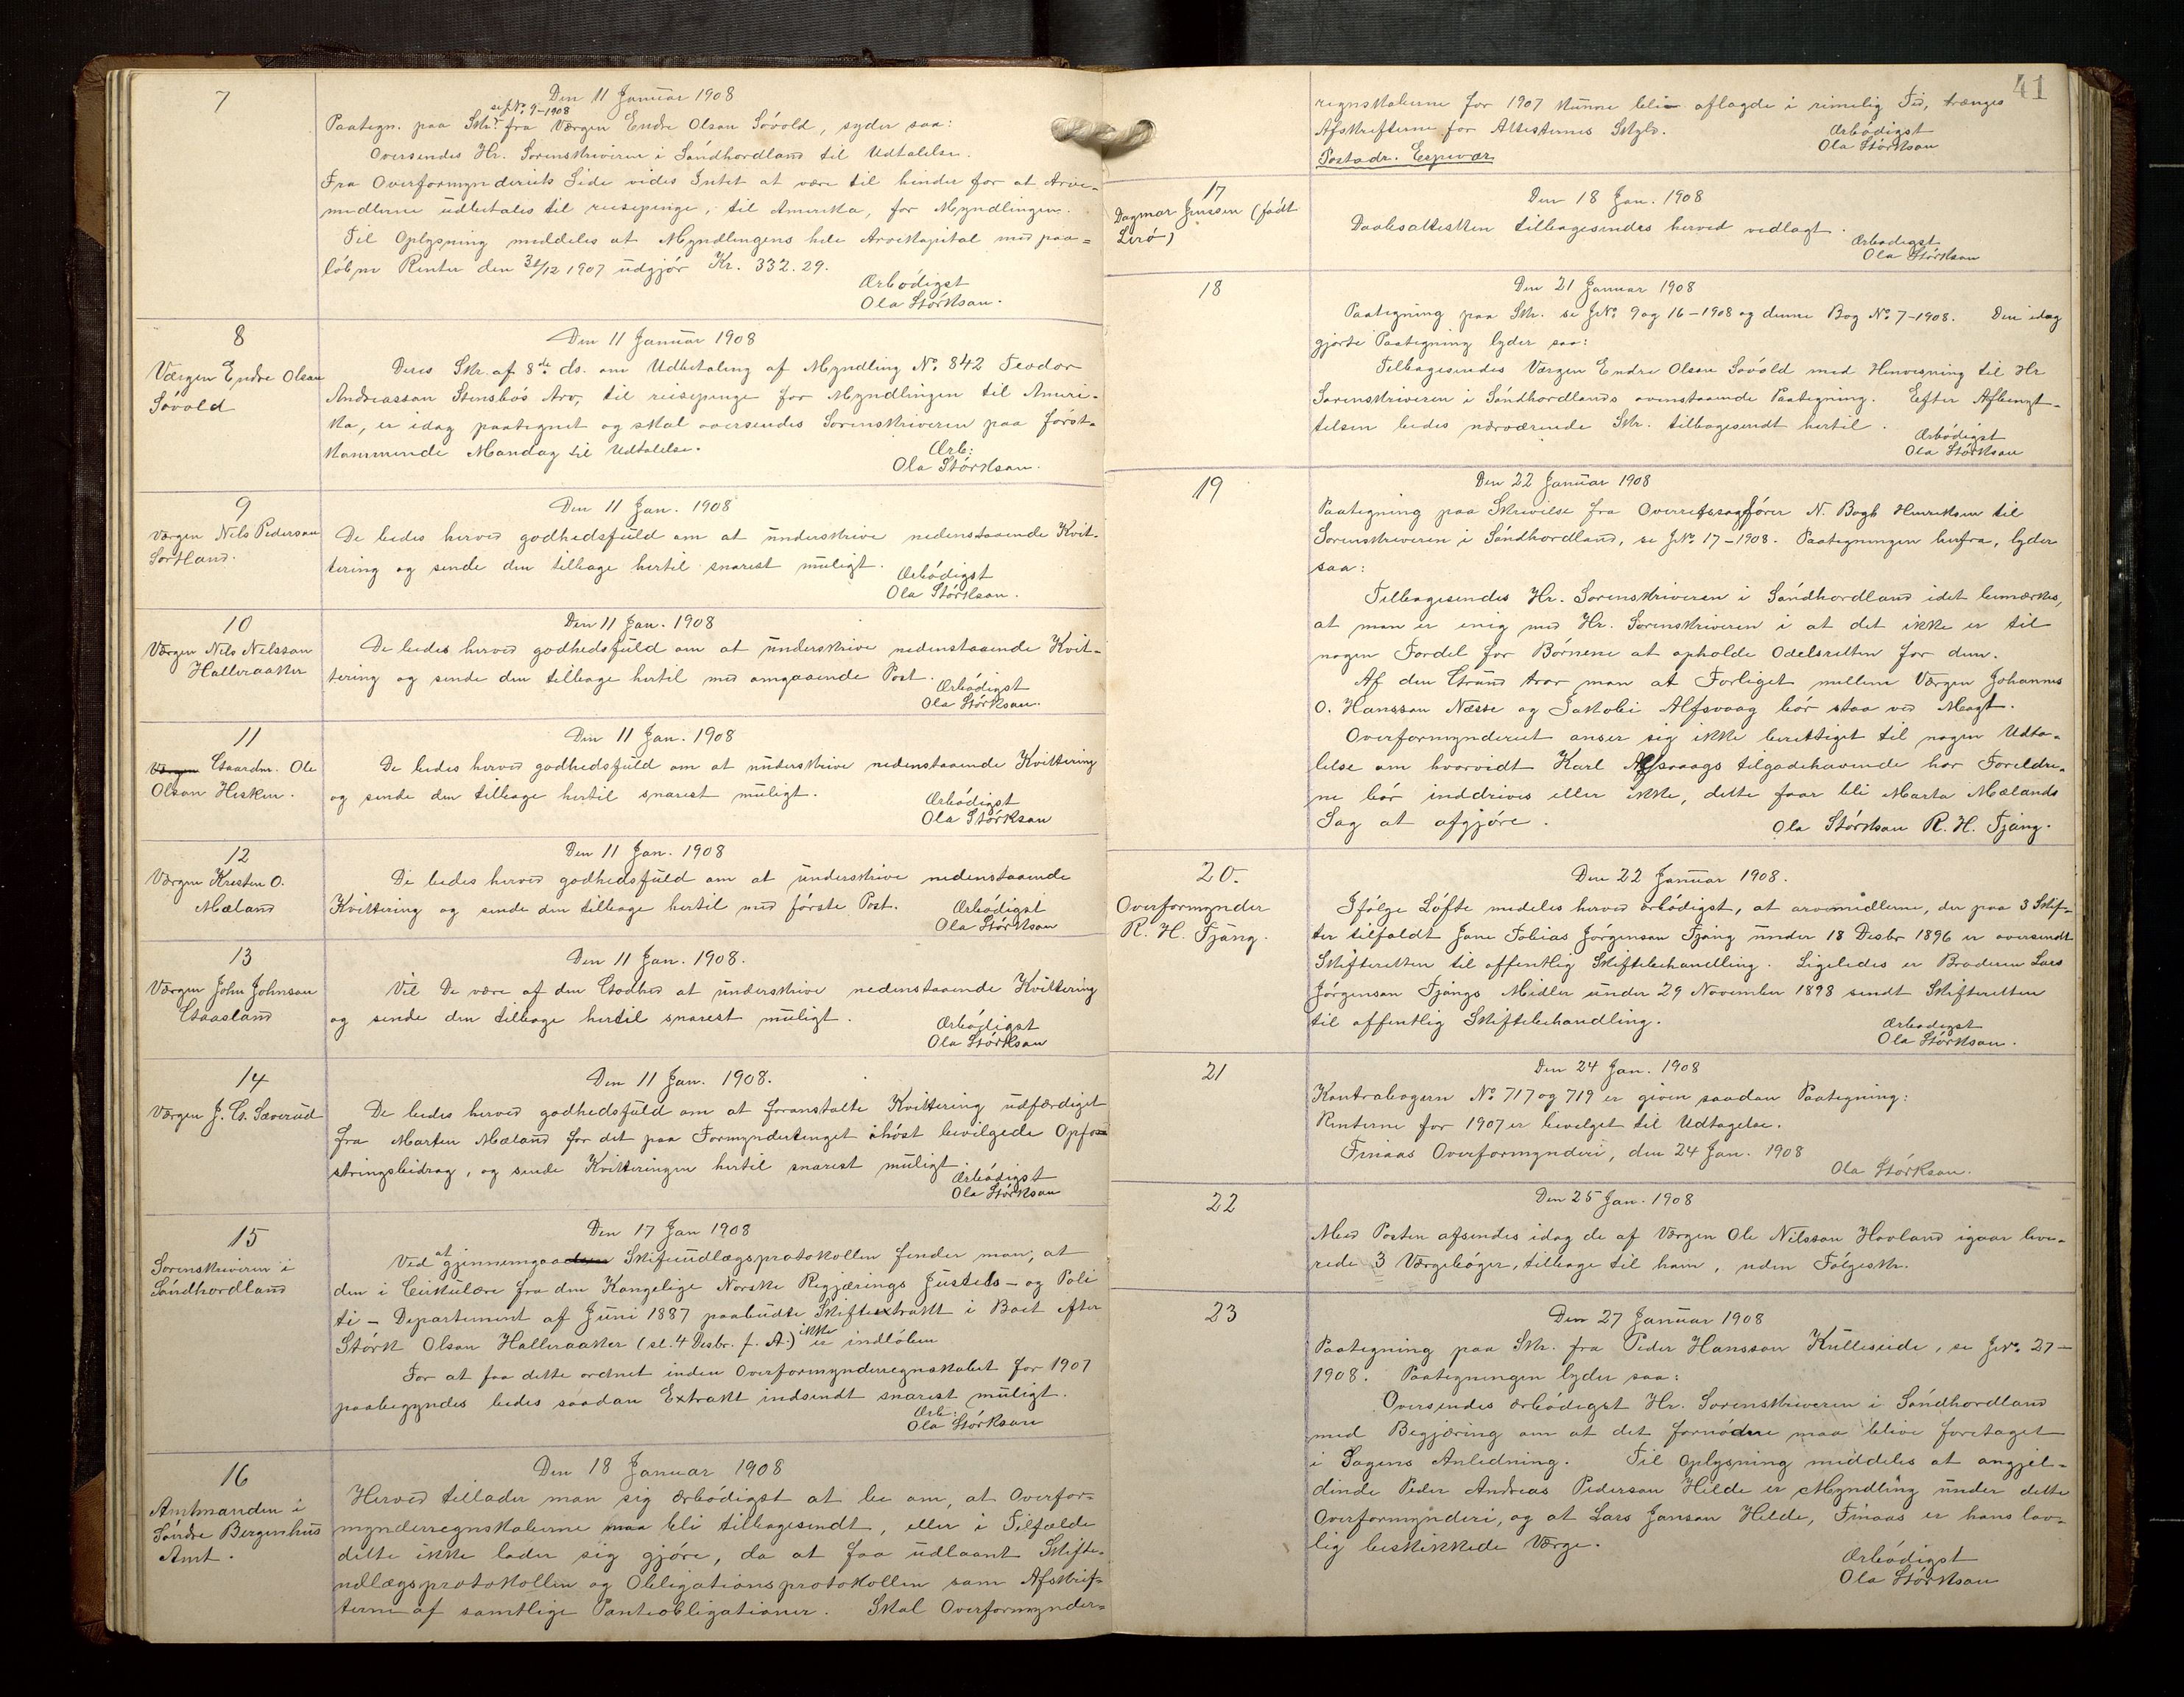 7
Den 11 Januar 1908
se J.No. 9-1908
Paategn. paa Skr. fra Værgen Endre Olson Sóvold, lyder saa:
Oversendes Hr. Sorenskriveren i Sóndhordland til Udtalelse.
Fra Overformynderiets Side vides Intet at være til hinder for at Arve-
midlerne udbetales til reisepenge, til Amerika, for Myndlingen.
Til Oplysning meddeles at Myndlingens hele Arvekapital med paa-
lóbne Renter den 31/12 1907 udgjór Kr. 332.29.
Ærbódigst
Ola Stórkson.
8
Værgen Endre Olson
Sóvold
Den 11 Januar 1908
Deres Skr. af 8de ds. om Udbetaling af Myndling No. 842 Teodor
Andreasson Stensbós Arv, til reisepenge for Myndlingen til Ameri-
ka, er idag paategnet og skal oversendes Sorenskriveren paa fórst-
kommende Mandag til Udtalelse.
Ærb:
Ola Stórkson.
9
Værgen Nils Pederson
Sortland.
Den 11 Jan. 1908
De bedes herved godhedsfuld om at underskrive nedenstaaende Kvit-
tering og sende den tilbage hertil snarest muligt.
Ærbódigst
Ola Stórkson.
10
Værgen Nils Nilsson
Halleraaker
Den 11 Jan. 1908
De bedes herved godhedsfuld om at underskrive nedenstaaende Kvit-
tering og sende den tilbage hertil med omgaaende Post.
Ærbódigst
Ola Stórkson.
11
Værgen Gaardm. Ole
Olson Hisken.
Den 11 Jan. 1908
De bedes herved godhedsfuld om at underskrive nedenstaaende Kvittering
og sende den tilbage hertil snarest muligt.
Ærbódigst
Ola Stórkson
12
Værgen Kristen O.
Mæland
Den 11 Jan. 1908
De bedes herved godhedsfuld om at underskrive nedenstaaende
Kvittering og sende den tilbage hertil med fórste Post.
Ærbódigst
Ola Stórkson
13
Værgen John Johnson
Gaasland
Den 11 Jan. 1908.
Vil De være af den Godhed at underskrive nedenstaaende Kvittering
og sende den tilbage hertil snarest muligt.
Ærbódigst
Ola Stórkson
14
Værgen J. G. Sæverud
Den 11 Jan. 1908.
De bedes herved godhedsfuld om at foranstalte Kvittering udfærdiget
fra Marten Mæland for det paa Formyndertinget ihóst bevilgede Opfo-
stringsbidrag, og sende Kvitteringen hertil snarest muligt.
Ærbódigst
Ola Stórkson
15
Sorenskriveren i
Sóndhordland
Den 17 Jan 1908
Ved at gjennemgaa Skifteudlægsprotokollen finder man, at
den i Cirkulære fra den Kongelige Norske Regjærings Justits- og Poli
ti- Departement af Juni 1887 paabudte Skifteextrakt i Boet efter
Stórk Olson Halleraaker (sl. 4 Desbr. f. A.) ikke er indlóben
For at faa dette ordnet inden Overformynderregnskabet for 1907
paabegyndes bedes saadan Extrakt indsendt snarest muligt.
Ærb:
Ola Stórkson
16
Amtmanden i
Sóndre Bergenhus
Amt.
Den 18 Januar 1908
Herved tillader man sig ærbódigst at be om, at Overfor-
mynderregnskaberne maa bli tilbagesendt, eller i Tilfælde
dette ikke lader sig gjóre, da at faa udlaant Skifte-
udlægsprotokollen og Obligationsprotokollen som Afskrif-
terne af samtlige Panteobligationer. Skal Overformynder-
41
regnskaberne for 1907 kunne bli aflagde i rimelig Tid, trænges
Afskrifterne for Attesternes Skyld.
Ærbódigst
Ola Stórkson
Postadr. Espevær
17
Dagmar Jenssen (fódt
Leró)
Den 18 Jan. 1908
Daabsattesten tilbagesendes herved vedlagt.
Ærbodigst
Ola Stórkson
18
Den 21 Januar 1908
Paategning paa Skr. se J.No. 9 og 16-1908 og denne Bog No. 7-1908. Den idag
gjorte Paategning lyder saa:
Tilbagesendes Værgen Endre Olson Sóvold med Henvisning til Hr
Sorenskriveren i Sóndhordlands ovenstaaende Paategning. Efter Afbenyt-
telsen bedes nærværende Skr. tilbagesendt hertil.
Ærbódigst
Ola Stórkson
19
Den 22 Januar 1908
Paategning paa Skrivelse fra Overretssagfórer N. Bogh Henriksen til
Sorenskriveren i Sóndhordland, se J.No. 17-1908. Paategningen herfra, lyder
saa:
Tilbagesendes Hr. Sorenskriveren i Sóndhordland idet bemærkes,
at man er enig med Hr. Sorenskriveren i at det ikke er til
nogen Fordel for Bórnene at opholde Odelsretten for dem.
Af den Grund tror man at Forliget mellem Værgen Johannes
O. Hansson Næsse og Jakobi Alfsvaag bór staa ved Magt.
Overformynderiet anser sig ikke berettiget til nogen Udta-
lelse om hvorvidt Karl Alfsvaags tilgodehavende hos Foreldre-
ne bór inddrives eller ikke, dette faar bli Marta Mælands
Sag at afgjóre.
Ola Stórkson R. H. Tjong.
20.
Overformynder
R. H. Tjong.
Den 22 Januar 1908.
Ifólge Lófte medeles herved ærbódigst, at arvemidlerne, der paa 3 Skif-
ter tilfaldt Jone Tobias Jórgenson Tjong under 18 Desbr 1896 er oversendt
Skifteretten til offentlig Skiftebehandling. Ligeledes er Broderen Lars
Jórgenson Tjongs Midler under 29 November 1898 sendt Skifteretten
til offentlig Skiftebehandling.
Ærbodigst
Ola Stórkson.
21
Den 24 Jan. 1908
Kontrabogern No. 717 og 719 er given saadan Paategning:
Renterne for 1907 er bevilget til Udtagelse.
Finaas Overformynderi, den 24 Jan. 1908
Ola Stórkson.
22
Den 25 Jan. 1908
Med Posten afsendes idag de af Værgen Ole Nilsson Hovland igaar leve-
rede 3 Værgebóger, tilbage til ham, uden Fólgeskr.
23
Den 27 Januar 1908
Paategning paa Skr. fra Peder Hansson Kulleseide, se J.No. 27-
1908. Paategningen lyder saa:
Oversendes ærbódigst Hr. Sorenskriveren i Sóndhordland
med Begjæring om at det fornódne maa blive foretaget
i Sagens Anledning. Til Oplysning meddeles at angjel-
dinde Peder Andreas Pederson Hilde er Myndling under dette
Overformynderi, og at Lars Janson Hilde, Finaas er hans lov-
lig beskikkede Værge.
Ærbódigst
Ola Stórkson